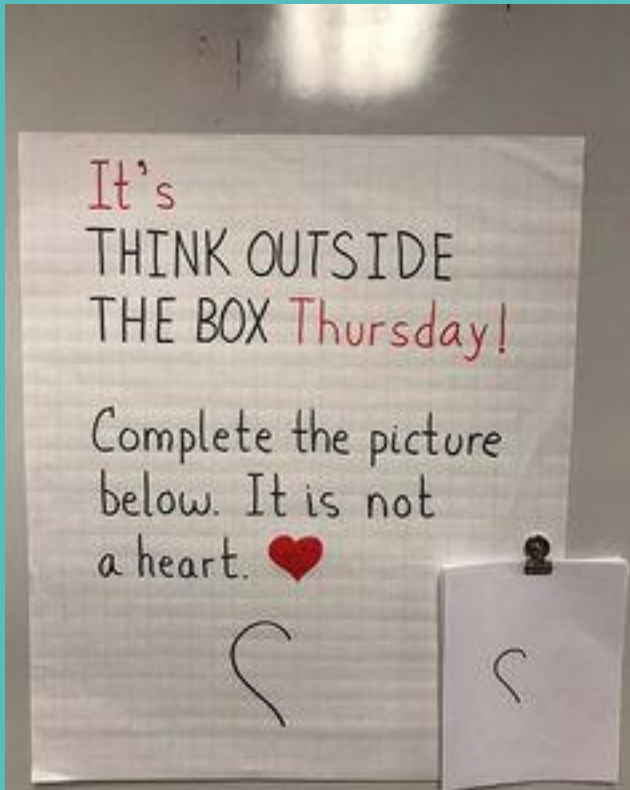 It's
THINK OUTSIDE
THE BOX Thursday!
Complete the picture
below. It is not
a heart.